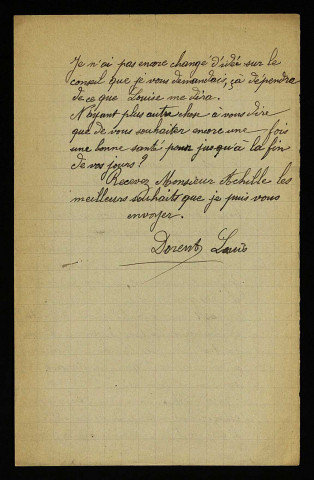 Je n'ai pas encore changé d'idée sur le
conseil que je vous demandais, çà dépendra
de ce que Louise me dira.
N'ayant plus autre chose à vous dire
que de vous souhaiter encore une fois
une bonne santé pour jusqu'à la fin
de vos jours?
Recevez Monsieur Achille les
meilleurs souhaits que je puis vous
envoyer.
Dorent Louis